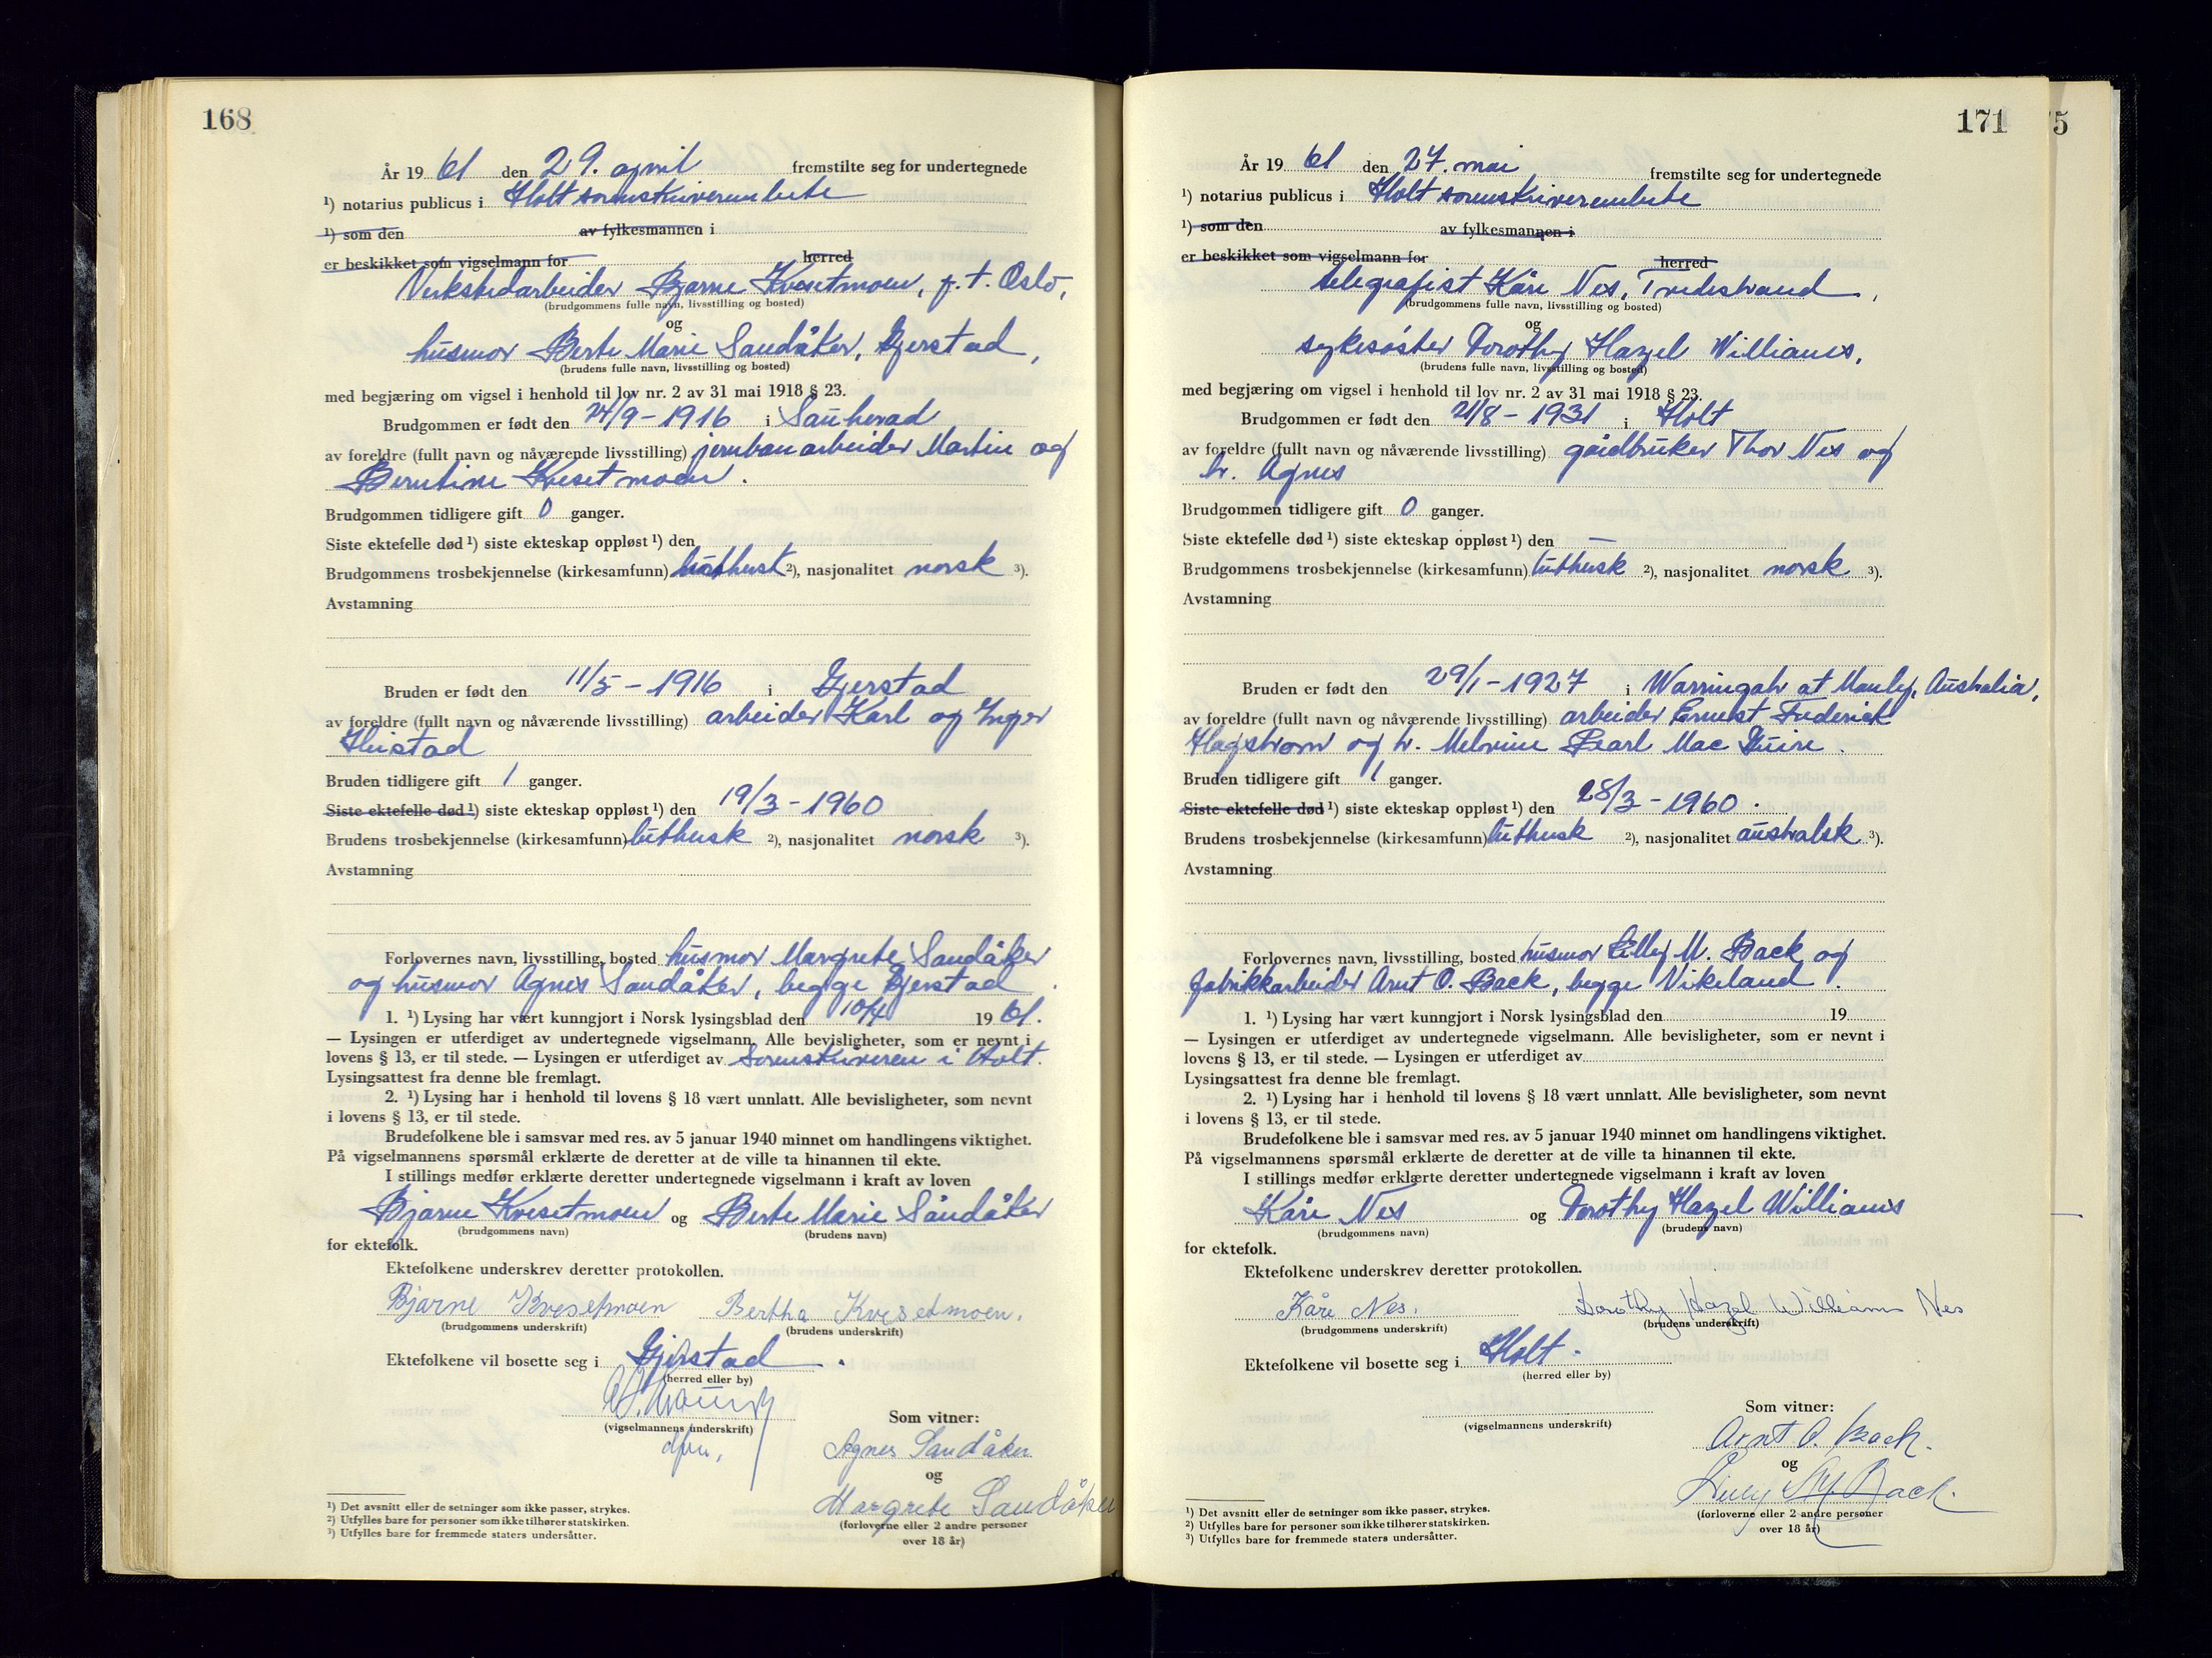 168
År 19 61 den 29. april fremstilte seg for undertegnede
¹) notarius publicus i Holt sorenskriverembete
¹) som den av fylkesmannen i
er beskikket som vigselmann for herred
Verkstedarbeider Bjarne Kvesetmoen, p.t. Oslo,
(brudgommens fulle navn, livsstilling og bosted)
og
husmor Berte Marie Sandåker, Gjerstad,
(brudens fulle navn, livsstilling og bosted)
med begjæring om vigsel i henhold til lov nr. 2 av 31 mai 1918 § 23.
Brudgommen er født den 24/9 - 1916 i Sauherad
av foreldre (fullt navn og nåværende livsstilling) jernbanarbeider Martin og
Berntine Kvesetmoen.
Brudgommen tidligere gift 0 ganger.
Siste ektefelle død ¹) siste ekteskap oppløst ¹) den
Brudgommens trosbekjennelse (kirkesamfunn) ²), nasjonalitet norsk ³).
Avstamning
Bruden er født den 11/5 - 1916 i Gjerstad
av foreldre (fullt navn og nåværende livsstilling) arbeider Karl og Inger
Heistad
Bruden tidligere gift 1 ganger.
Siste ektefelle død ¹) siste ekteskap oppløst ¹) den 19/3 - 1960
Brudens trosbekjennelse (kirkesamfunn) luthersk ²), nasjonalitet norsk ³).
Avstamning
Forlovernes navn, livsstilling, bosted husmor Margrete Sandåker
og husmor Agnes Sandåker, begge Gjerstad.
1. ¹) Lysing har vært kunngjort i Norsk lysingsblad den 10/4 19 61.
— Lysingen er utferdiget av undertegnede vigselmann. Alle bevisligheter, som er nevnt i
lovens § 13, er til stede. — Lysingen er utferdiget av Sorenskriveren i Holt.
Lysingsattest fra denne ble fremlagt.
2. ¹) Lysing har i henhold til lovens § 18 vært unnlatt. Alle bevisligheter, som nevnt
i lovens § 13, er til stede.
Brudefolkene ble i samsvar med res. av 5 januar 1940 minnet om handlingens viktighet.
På vigselmannens spørsmål erklærte de deretter at de ville ta hinannen til ekte.
I stillings medfør erklærte deretter undertegnede vigselmann i kraft av loven
Bjarne Kvesetmoen og Berte Marie Sandåker
(brudgommens navn) (brudens navn)
for ektefolk.
Ektefolkene underskrev deretter protokollen.
Bjarne Kvesetmoen Bertha Kvesetmoen.
(brudgommens underskrift) (brudens underskrift)
Ektefolkene vil bosette seg i Gjerstad.
(herred eller by)
(vigselmannens underskrift)
Som vitner:
Agnes Sandåker
og
Margrete Sandåker
(forloverne eller 2 andre personer
over 18 år)
¹) Det avsnitt eller de setninger som ikke passer, strykes.
²) Utfylles bare for personer som ikke tilhører statskirken.
³) Utfylles bare for fremmede staters undersåtter.
171 5
År 19 61 den 27. mai fremstilte seg for undertegnede
¹) notarius publicus i Holt sorenskriverembete
¹) som den av fylkesmannen i
er beskikket som vigselmann for herred
telegrafist Kåre Nes, Tvedestrand,
(brudgommens fulle navn, livsstilling og bosted)
og
sykesøster Dorothy Hazel Williams,
(brudens fulle navn, livsstilling og bosted)
med begjæring om vigsel i henhold til lov nr. 2 av 31 mai 1918 § 23.
Brudgommen er født den 21/8 - 1931 i Holt
av foreldre (fullt navn og nåværende livsstilling) gårdbruker Thor Nes og
h. Agnes
Brudgommen tidligere gift 0 ganger.
Siste ektefelle død ¹) siste ekteskap oppløst ¹) den —
Brudgommens trosbekjennelse (kirkesamfunn) luthersk ²), nasjonalitet norsk ³).
Avstamning
Bruden er født den 29/1 - 1927 i Warringah at Manly, Australia,
av foreldre (fullt navn og nåværende livsstilling) arbeider Ernest Frederick
Hagstrom og h. Melvine Pearl Mac Guire.
Bruden tidligere gift 1 ganger.
Siste ektefelle død ¹) siste ekteskap oppløst ¹) den 28/3 - 1960.
Brudens trosbekjennelse (kirkesamfunn) luthersk ²), nasjonalitet australsk ³).
Avstamning
Forlovernes navn, livsstilling, bosted husmor Lilly M. Back og
fabrikkarbeider Arnt O. Back, begge Vikeland.
1. ¹) Lysing har vært kunngjort i Norsk lysingsblad den 19
— Lysingen er utferdiget av undertegnede vigselmann. Alle bevisligheter, som er nevnt i
lovens § 13, er til stede. — Lysingen er utferdiget av
Lysingsattest fra denne ble fremlagt.
2. ¹) Lysing har i henhold til lovens § 18 vært unnlatt. Alle bevisligheter, som nevnt
i lovens § 13, er til stede.
Brudefolkene ble i samsvar med res. av 5 januar 1940 minnet om handlingens viktighet.
På vigselmannens spørsmål erklærte de deretter at de ville ta hinannen til ekte.
I stillings medfør erklærte deretter undertegnede vigselmann i kraft av loven
Kåre Nes og Dorothy Hazel Williams
(brudgommens navn) (brudens navn)
for ektefolk.
Ektefolkene underskrev deretter protokollen.
Kåre Nes. Dorothy Hazel Williams Nes
(brudgommens underskrift) (brudens underskrift)
Ektefolkene vil bosette seg i Holt.
(herred eller by)
(vigselmannens underskrift)
Som vitner:
Arnt O. Back.
og
Lilly M. Back.
(forloverne eller 2 andre personer
over 18 år)
¹) Det avsnitt eller de setninger som ikke passer, strykes.
²) Utfylles bare for personer som ikke tilhører statskirken.
³) Utfylles bare for fremmede staters undersåtter.